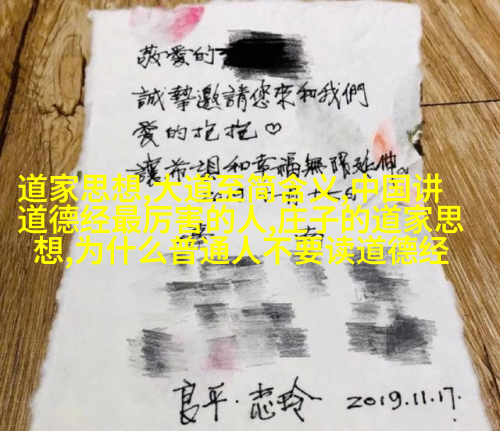 敬愛的
誠摯邀請您來和我們
愛的抱抱♡
讓希望和幸福無限延伸
道家思想,大道至简含义,中国讲
道德经最厉害的人,庄子的道家思
想,为什么普通人不要读道德经
良平·志玲 2019.11.17.